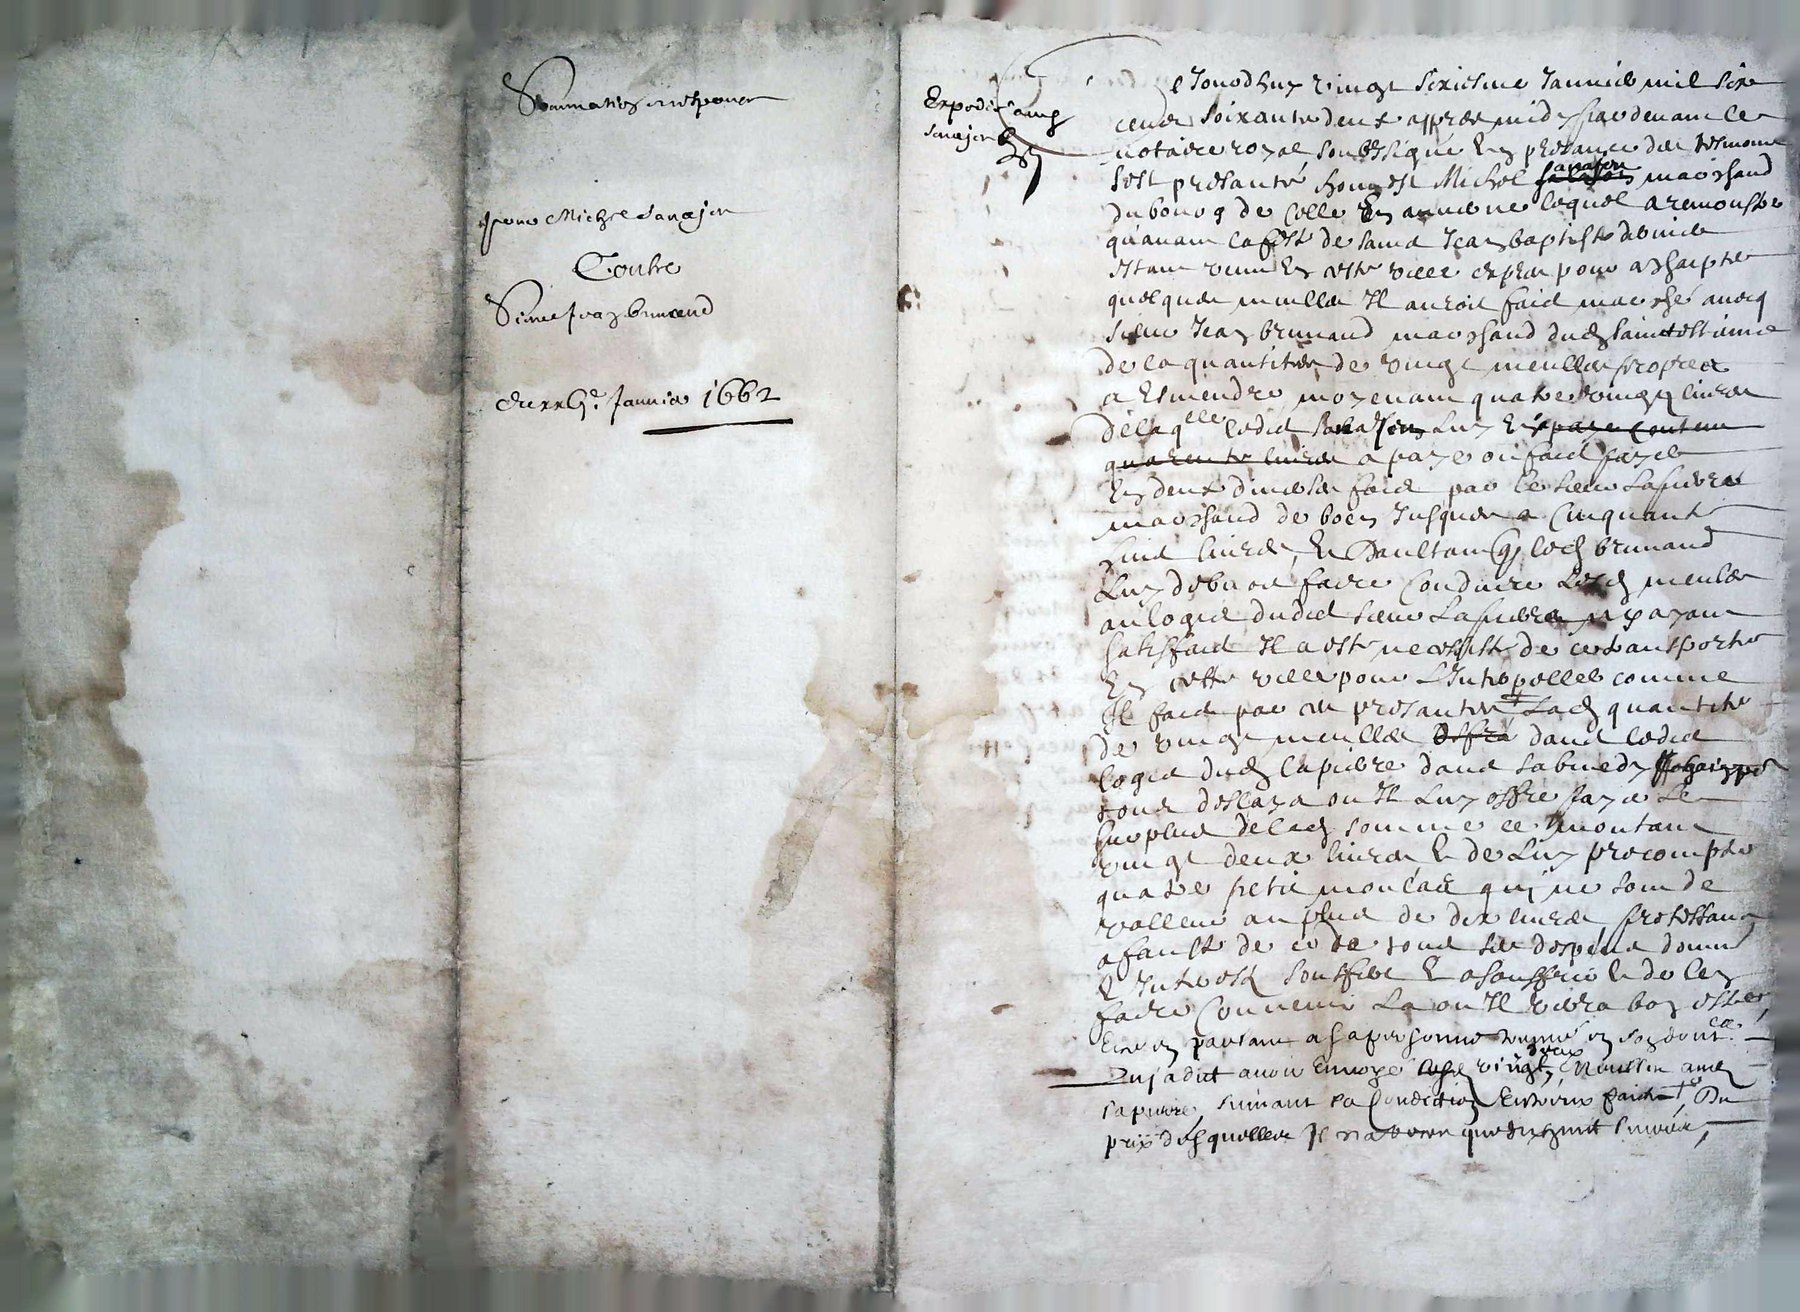 Sommation et responce
pour Michel Sanajon
Contre
Sieur Jean brunand
du xxbj.e Janvier 1662
Expedié aud
Sanajon
Ce Jourdhuy vingt sixiesme Janvier mil six
cens soixante deux appres midy par devant le
notaire royal soubzsigné En presance des tesmoins
sest presanté honnest Michel sanajon marchand
du bourg de Celle En auvergne lequel a remonstré
qu'avant la feste de saint Jean baptiste derniere
estant venu En ceste ville expres pour achapter
quelques meulles Il auroit faict marché avecq
sieur Jean brunand marchand dud saint estienne
de la quantité de vingt meulles propres
a Esmendre moyenant quatre vingtz livres
delaquelle ledict sanajon Luy En paya contem
quarente livres a payé ou faict payer
En deux divers fois par le sieur Lapierre
marchand de boen Jusques a Cinquante
huict livres, Et Daultant que led brunand
Luy debvoit faire Conduire Lesd meules
au logis dudict sieur Lapierre ny ayant
satisfaict Il a esté necessité de ce transporter
En ceste ville pour L'Interpeller comme
Il faict par ces presantes Lad quantité
de vingt meulles dans ledict
logis dud lapierre dans sabmedy
tous deslays ou Il Luy offre payer Le
surplus de lad somme ce montant
vingt deux livres Et de Luy precompter
quatre petis moulars quj ne sont de
valleur au plus de dix livres protestant
a faulte de ce de tous ses despens domma
Et Interestz souffers Et a souffrir Et de le
faire Convenir La ou Il verra bon estre
Ce en parlant a sa personne trouvé en son domicille
Quj a dict avoir Envoyé vingt deux Moullin audit
lapierre, suivant la Condition Entreux faicte, Du
prix desquelles Jl n'a que dix huict livres,